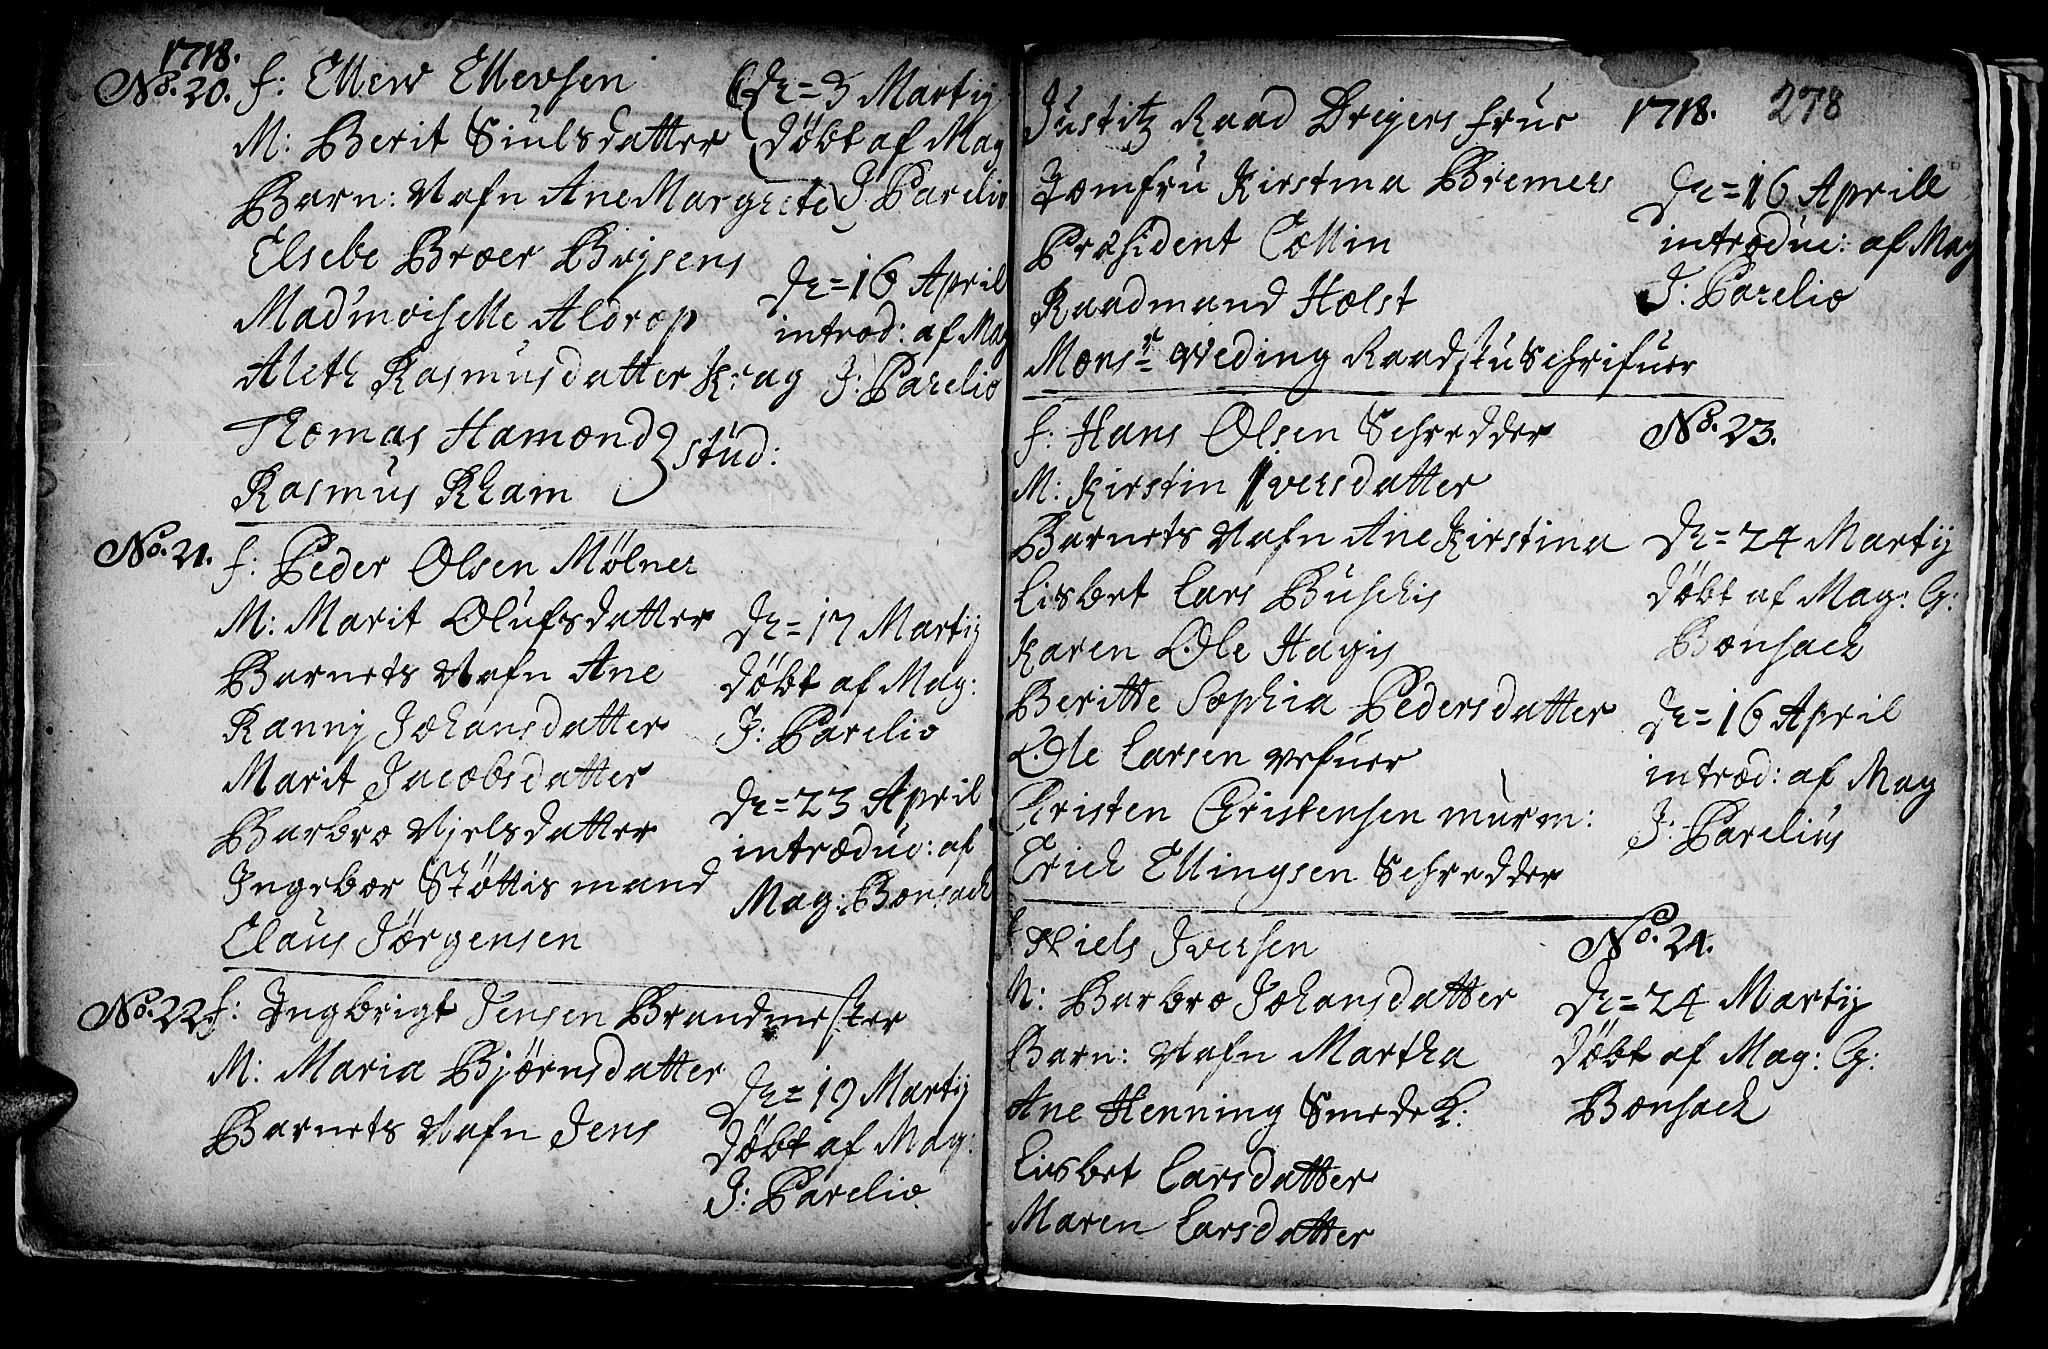 1718.
No. 20. f: Ellew Ellevsen
M: Berit Siulsdatter
Barn: Nafn Ane Margrete
Elsebe Broer Boysens
Mad'moiselle Aldrop
Aleth Rasmusdatter Krag
Thomas Hamond
Rasmus Kham } stud:
D. = 3 Martij
döbt af Mag
J: Parelio
D. = 16 April
introd: af Mag
J: Parelio
No. 21. f: Peder Olsen Mölner
M: Marit Olufsdatter
Barnets Nafn Ane
Ranny Johansdatter
Marit Jacobsdatter
Barbro Njelsdatter
Ingebor Stöttis mand
Claus Jörgensen
D. = 17 Martij
döbt af Mag:
J: Parelio
D. = 23 April
introduc: af
Mag: Bonsach
No. 22. f: Ingbrigt Jensen Brandmester
M: Maria Bjørnsdatter
Barnets Nafn Jens
D. = 19 Martij
döbt af Mag:
J: Parelio
1718. 278
Justitz Raad Dreyers frue
Jomfru Kirstina Bremers
Præsident Collin
Raadmand Holst
Monsr Weding Raadstu Schrifuer
D. = 16 Aprill
introduc: af Mag
J: Parelio
No. 23.
f: Hans Olsen Schredder
M: Kirstin Iversdatter
Barnets Nafn Ane Kirstina
Lisbet Lars Buschis
Karen Ole Hagis
Beritte Sophia Pedersdatter
Ole Larsen Vefuer
Christen Christensen murm:
Erich Ellingsen Schredder
D. = 24 Martij
döbt af Mag: G:
Bonsach
D. = 16 April
introd: af Mag
J: Parelius
No. 24.
f Niels Iversen
M: Barbro Johansdatter
Barn: Nafn Martha
Ane Henning Smede K:
Lisbet Larsdatter
Maren Larsdatter
D. = 24 Martij
döbt af Mag: G:
Bonsach